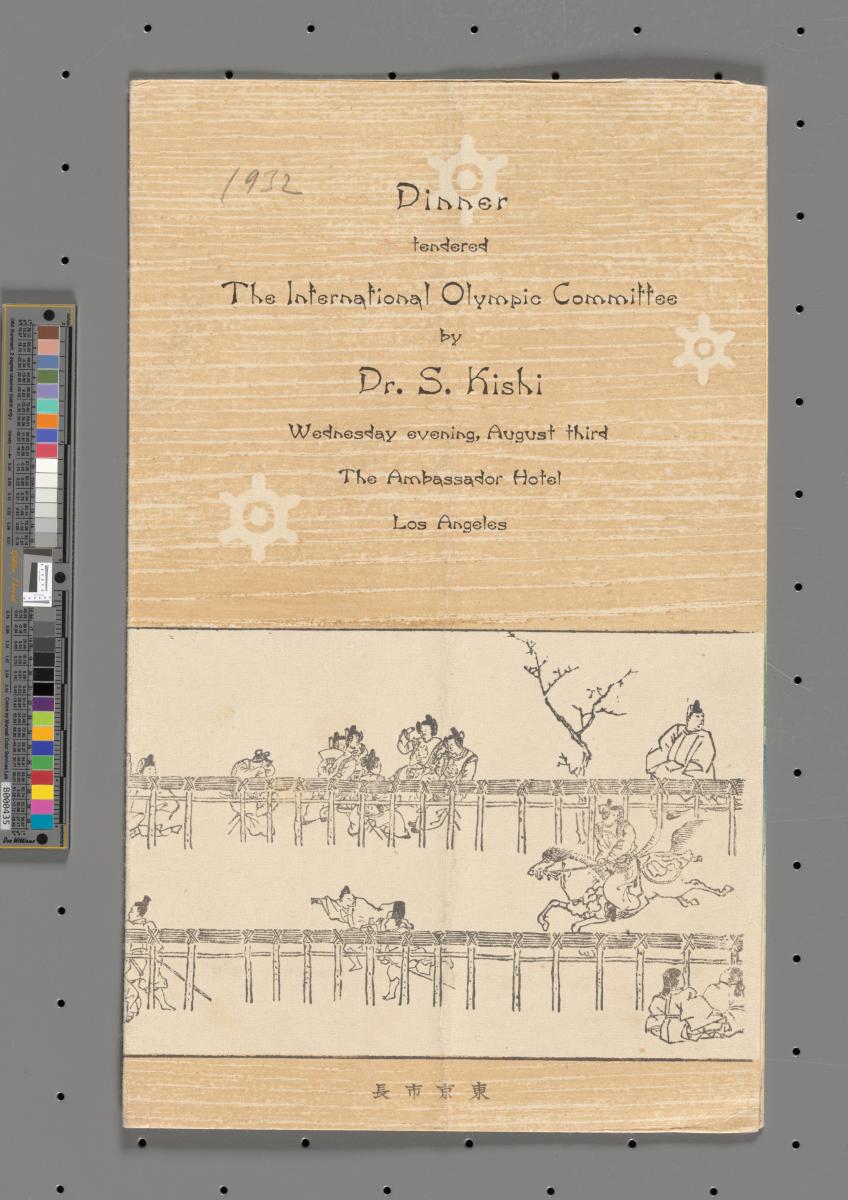 1932
Dinner
tendered
The International Olympic Committee
by
Dr. S. Kishi
Wednesday evening, August third
The Ambassador Hotel
Los Angeles
長市京東
B000435